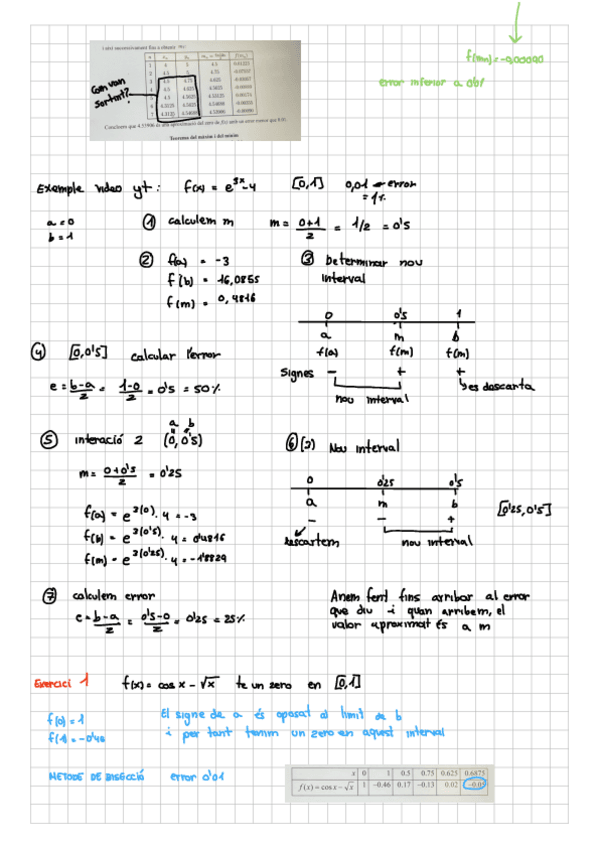 f(mn)=-0,00090
error inferior a 0'01
n
1 4 5 4.5
2 4.5 5 4.75
3 4.5 4.75 4.625
4 4.5 4.625 4.5625
5 4.5 4.5625 4.53125
Com van
sortint?
Concloem que 4.53906 és una aproximació del zero de f(x) amb un error menor que 0.01.
Teorema del màxim i del mínim
Exemple video yt: f(x) = e^3x-4 [0,1] 0,01 error
= 1%
a = 0
b = 1
① calculem m m = 0+1/2 = 1/2 = 0'5
② f(a) = -3
f(b) = 16,0855
f(m) = 0,4816
③ Determinar nou
interval
0 0'5 1
a m b
f(a) f(m) f(m)
Signes - + +
nou interval
es descarta
④ [0,0'5] calcular l'error
e = b-a/2 = 1-0/2 = 0'5 = 50%
a b
⑤ interació 2 (0,0'5)
m = 0+0'5/2 = 0'25
f(a) = e^3(0). 4 = -3
f(b) = e^3(0'5). 4 = 0'4816
f(m) = e^3(0'25). 4 = -1'8829
⑥ (3) Nou interval
0 0'25 0'5
a m b
- - +
descartem nou interval
[0'25,0'5]
⑦ calculem error
e = b-a/2 = 0'5-0/2 = 0'25 = 25%
Anem fent fins arribar al error
que diu i quan arribem, el
valor aproximat és a m
Exercici 1 f(x) = cos x - √x te un zero en [0,1]
f(0) = 1
f(1) = -0'46
El signe de a és oposat al limit de b
i per tant tenim un zero en aquest interval
METODE DE BISECCIÓ error 0'01
x 0 1 0.5 0.75 0.625 0.6875
f(x) = cos x - √x 1 -0.46 0.17 -0.13 0.02 -0.05